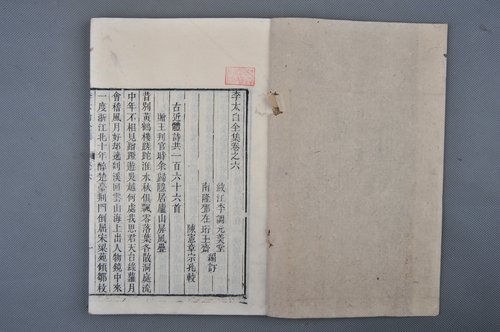 李太白全集卷之六
綿江李調元美堂
南隆鄧在珩玉齋 編訂
陳憲章宗孔較
古近體詩共一百六十六首
贈王判官時余歸隱居廬山屏風疊
昔別黃鶴樓蹉跎淮水秋俱飄零落葉各散洞庭流
中年不相見蹭蹬遊吳越何處我思君天台綠蘿月
會稽風月好却遶剡溪回雲山海上出人物鏡中來
一度浙江北十年醉楚臺荆門倒屈宋梁苑傾鄒枚